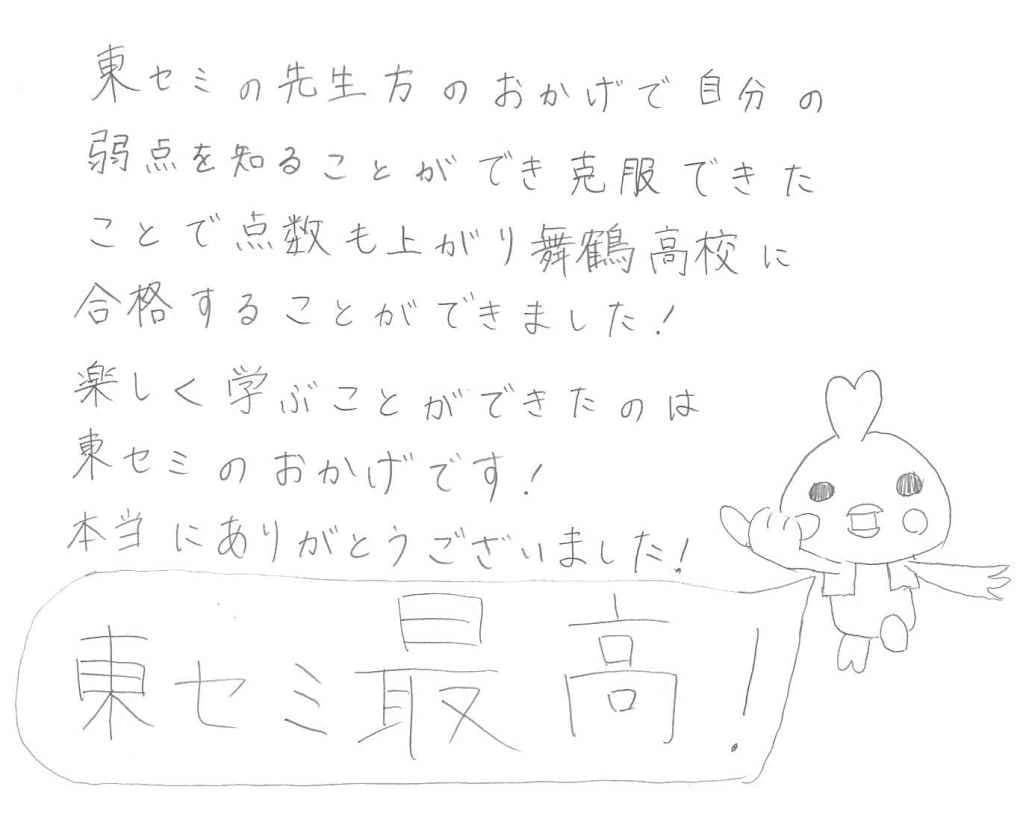 東セミの先生方のおかげで自分の
弱点を知ることができ克服できた
ことで点数も上がり舞鶴高校に
合格することができました!
楽しく学ぶことができたのは
東セミのおかげです!
本当にありがとうございました!
東セミ最高!